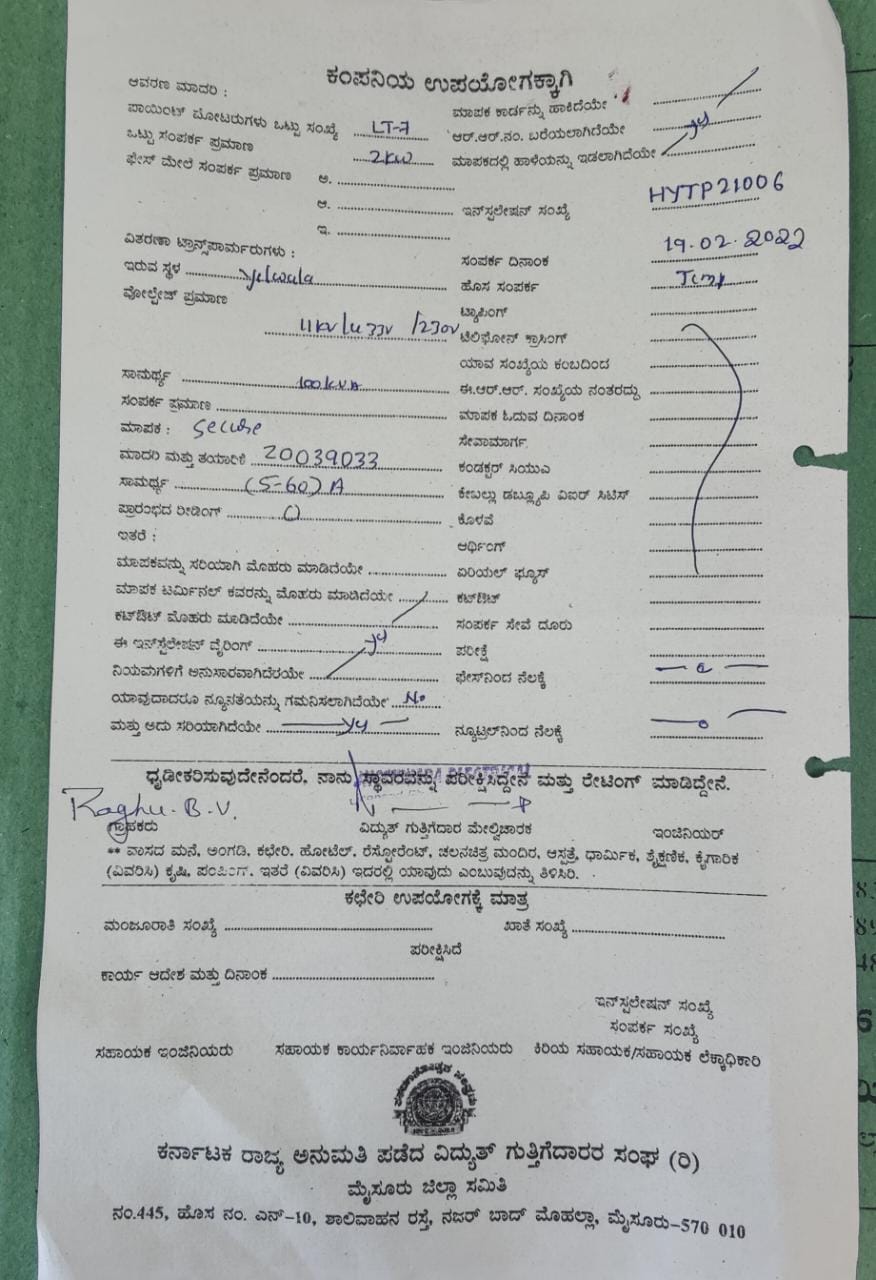 ಕಂಪನಿಯ ಉಪಯೋಗಕ್ಕಾಗಿ
ಆವರಣ ಮಾದರಿ :
ಮಾಪಕ ಕಾರ್ಡನ್ನು ಹಾಕಿದೆಯೇ
ಪಾಯಿಂಟ್ ಮೋಟರುಗಳು ಒಟ್ಟು ಸಂಖ್ಯೆ LT-7 ಆರ್.ಆರ್.ನಂ. ಬರೆಯಲಾಗಿದೆಯೇ
ಒಟ್ಟು ಸಂಪರ್ಕ ಪ್ರಮಾಣ 2KW ಮಾಪಕದಲ್ಲಿ ಹಾಳೆಯನ್ನು ಇಡಲಾಗಿದೆಯೇ
ಫೇಸ್ ಮೇಲೆ ಸಂಪರ್ಕ ಪ್ರಮಾಣ ಅ.
ಆ. ಇನ್‌ಸ್ಟಲೇಷನ್ ಸಂಖ್ಯೆ HYTP21006
ಇ.
ವಿತರಣಾ ಟ್ರಾನ್ಸ್‌ಪಾರ್ಮರುಗಳು : ಸಂಪರ್ಕ ದಿನಾಂಕ 19.02.2022
ಇರುವ ಸ್ಥಳ Yelwala ಹೊಸ ಸಂಪರ್ಕ Temp
ವೋಲ್ಟೇಜ್ ಪ್ರಮಾಣ ಟ್ಯಾಪಿಂಗ್
11KV/433V /230V ಟೆಲಿಫೋನ್ ಕ್ರಾಸಿಂಗ್
ಯಾವ ಸಂಖ್ಯೆಯ ಕಂಬದಿಂದ
ಸಾಮರ್ಥ್ಯ 100KVA ಈ.ಆರ್.ಆರ್. ಸಂಖ್ಯೆಯ ನಂತರದ್ದು
ಸಂಪರ್ಕ ಪ್ರಮಾಣ ಮಾಪಕ ಓದುವ ದಿನಾಂಕ
ಮಾಪಕ : Secure ಸೇವಾಮಾರ್ಗ
ಮಾದರಿ ಮತ್ತು ತಯಾರಿಕೆ 20039033 ಕಂಡಕ್ಟರ್ ಸಿಯುಎ
ಸಾಮರ್ಥ್ಯ (5-60) A ಕೇಬಲ್ಲು ಡಬ್ಲ್ಯೂಪಿ ವಿಐರ್ ಸಿಟಿಸ್
ಪ್ರಾರಂಭದ ರೀಡಿಂಗ್ 0 ಕೊಳವೆ
ಇತರೆ : ಆರ್ಥಿಂಗ್
ಮಾಪಕವನ್ನು ಸರಿಯಾಗಿ ಮೊಹರು ಮಾಡಿದೆಯೇ ಏರಿಯಲ್ ಫ್ಯೂಸ್
ಮಾಪಕ ಟರ್ಮಿನಲ್ ಕವರನ್ನು ಮೊಹರು ಮಾಡಿದೆಯೇ ಕಟ್‌ಔಟ್
ಕಟ್‌ಔಟ್ ಮೊಹರು ಮಾಡಿದೆಯೇ ಸಂಪರ್ಕ ಸೇವೆ ದೂರು
ಈ ಇನ್‌ಸ್ಟಲೇಷನ್ ವೈರಿಂಗ್ ಪರೀಕ್ಷೆ
ನಿಯಮಗಳಿಗೆ ಅನುಸಾರವಾಗಿದೆರಯೇ ಫೇಸ್‌ನಿಂದ ನೆಲಕ್ಕೆ
ಯಾವುದಾದರೂ ನ್ಯೂನತೆಯನ್ನು ಗಮನಿಸಲಾಗಿದೆಯೇ No
ಮತ್ತು ಅದು ಸರಿಯಾಗಿದೆಯೇ ನ್ಯೂಟ್ರಲ್‌ನಿಂದ ನೆಲಕ್ಕೆ
ಧೃಡೀಕರಿಸುವುದೇನೆಂದರೆ, ನಾನು ಸ್ಥಾವರವನ್ನು ಪರೀಕ್ಷಿಸಿದ್ದೇನೆ ಮತ್ತು ರೇಟಿಂಗ್ ಮಾಡಿದ್ದೇನೆ.
Raghu.B.V.
ಗ್ರಾಹಕರು ವಿದ್ಯುತ್ ಗುತ್ತಿಗೆದಾರ ಮೇಲ್ವಿಚಾರಕ ಇಂಜಿನಿಯರ್
** ವಾಸದ ಮನೆ, ಅಂಗಡಿ, ಕಛೇರಿ. ಹೋಟೆಲ್. ರೆಸ್ಟೋರೆಂಟ್, ಚಲನಚಿತ್ರ ಮಂದಿರ, ಆಸ್ಪತ್ರೆ, ಧಾರ್ಮಿಕ, ಶೈಕ್ಷಣಿಕ, ಕೈಗಾರಿಕ
(ವಿವರಿಸಿ) ಕೃಷಿ, ಪಂಪಿಂಗ್, ಇತರೆ (ವಿವರಿಸಿ) ಇದರಲ್ಲಿ ಯಾವುದು ಎಂಬುವುದನ್ನು ತಿಳಿಸಿರಿ.
ಕಛೇರಿ ಉಪಯೋಗಕ್ಕೆ ಮಾತ್ರ
ಮಂಜೂರಾತಿ ಸಂಖ್ಯೆ ಖಾತೆ ಸಂಖ್ಯೆ
ಪರೀಕ್ಷಿಸಿದೆ
ಕಾರ್ಯ ಆದೇಶ ಮತ್ತು ದಿನಾಂಕ
ಇನ್‌ಸ್ಟಲೇಷನ್ ಸಂಖ್ಯೆ
ಸಂಪರ್ಕ ಸಂಖ್ಯೆ
ಸಹಾಯಕ ಇಂಜಿನಿಯರು ಸಹಾಯಕ ಕಾರ್ಯನಿರ್ವಾಹಕ ಇಂಜಿನಿಯರು ಕಿರಿಯ ಸಹಾಯಕ/ಸಹಾಯಕ ಲೆಕ್ಕಾಧಿಕಾರಿ
ಕರ್ನಾಟಕ ರಾಜ್ಯ ಅನುಮತಿ ಪಡೆದ ವಿದ್ಯುತ್ ಗುತ್ತಿಗೆದಾರರ ಸಂಘ (ರಿ)
ಮೈಸೂರು ಜಿಲ್ಲಾ ಸಮಿತಿ
ನಂ.445, ಹೊಸ ನಂ. ಎನ್-10, ಶಾಲಿವಾಹನ ರಸ್ತೆ, ನಜರ್ ಬಾದ್ ಮೊಹಲ್ಲಾ, ಮೈಸೂರು-570 010